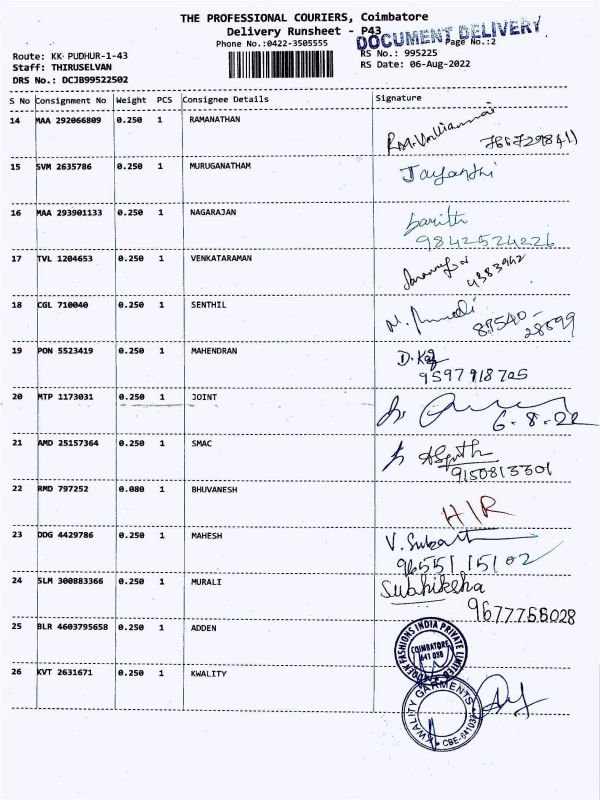 THE PROFESSIONAL COURIERS, Coimbatore
Delivery Runsheet - P43
DOCUMENT DELIVERY
Phone No.:0422-3505555
Page No.:2
Route: KK PUDHUR-1-43
RS No.: 995225
Staff: THIRUSELVAN
RS Date: 06-Aug-2022
DRS No.: DCJB99522502
S No Consignment No Weight PCS Consignee Details Signature
14 MAA 292066809 0.250 1 RAMANATHAN
15 SVM 2635786 0.250 1 MURUGANATHAM Jayanthi
16 MAA 293901133 0.250 1 NAGARAJAN
9842524226
17 TVL 1204653 0.250 1 VENKATARAMAN
4383942
18 CGL 710040 0.250 1 SENTHIL
87540-
28699
19 PON 5523419 0.250 1 MAHENDRAN
9597918705
20 MTP 1173031 0.250 1 JOINT
6-8-22
21 AMD 25157364 0.250 1 SMAC
9150813301
22 RMD 797252 0.080 1 BHUVANESH
H/R
23 DDG 4429786 0.250 1 MAHESH
9655115102
24 SLM 300883366 0.250 1 MURALI Subhiksha
9677766028
25 BLR 4603795658 0.250 1 ADDEN
FASHIONS INDIA PRIVATE LIMITED
COIMBATORE
641 038
26 KVT 2631671 0.250 1 KWALITY
KWALITY GARMENTS